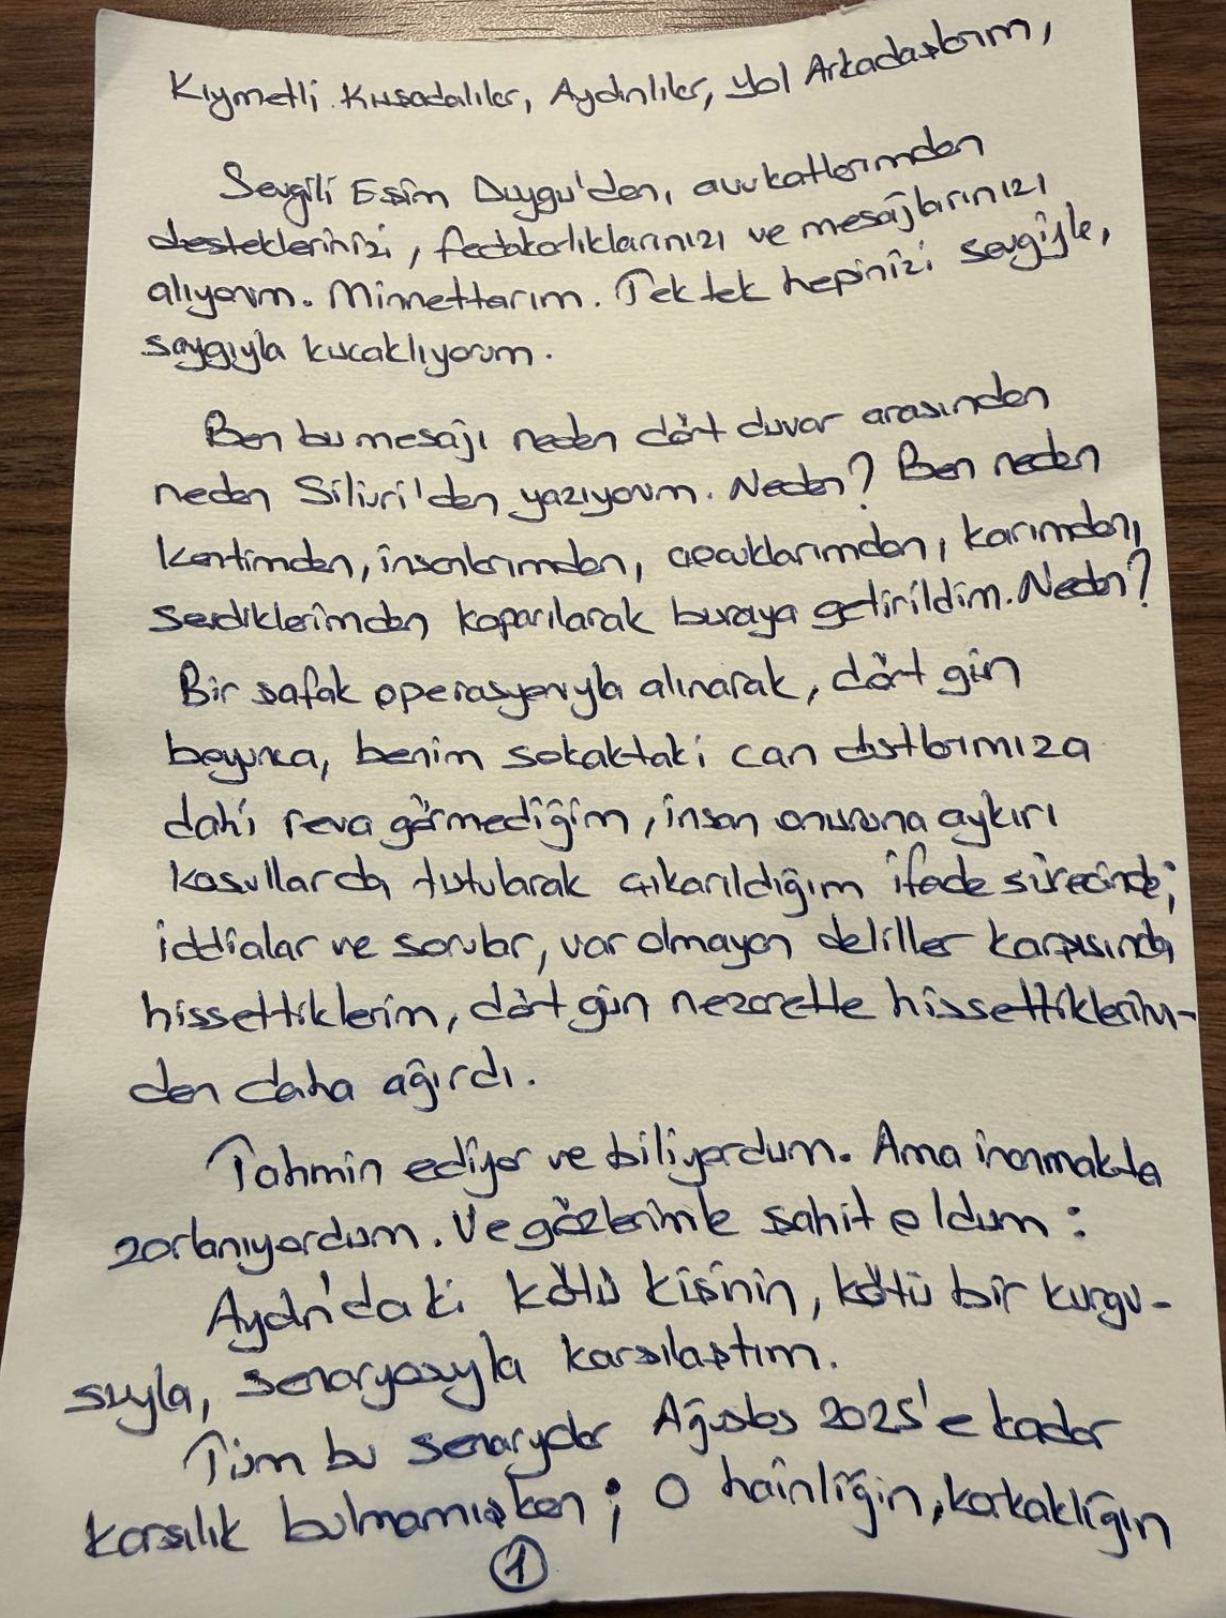 Kıymetli Kuşadalılar, Aydınlılar, Yol Arkadaşlarım,
Sevgili Eşim Duygu'den, avukatlarımdan
desteklerinizi, fedakarlıklarınızı ve mesajlarınızı
alıyorum. Minnettarım. Tek tek hepinizi sevgiyle,
saygıyla kucaklıyorum.
Ben bu mesajı neden dört duvar arasından
neden Silivri'den yazıyorum. Neden? Ben neden
kentimden, insanlarımdan, çocuklarımdan, karımdan,
sevdiklerimden koparılarak buraya getirildim. Neden?
Bir şafak operasyonuyla alınarak, dört gün
boyunca, benim sokaktaki can dostlarımıza
dahi reva görmediğim, insan onuruna aykırı
koşullarda tutularak çıkarıldığım ifade sürecinde;
iddialar ve sorular, var olmayan deliller karşısında
hissettiklerim, dört gün nezarette hissettiklerim-
den daha ağırdı.
Tahmin ediyor ve biliyordum. Ama inanmakta
zorlanıyordum. Ve gözlerimle şahit oldum :
Aydın'daki kötü kişinin, kötü bir kurgu-
suyla, senaryosuyla karşılaştım.
Tüm bu senaryolar Ağustos 2025'e kadar
karşılık bulmamışken ; O hainliğin, korkaklığın
1